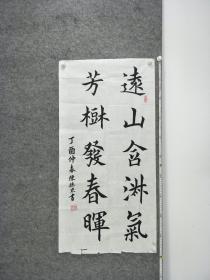 遠山含淋氣
芳樹發春暉
丁酉仲春陳振東書